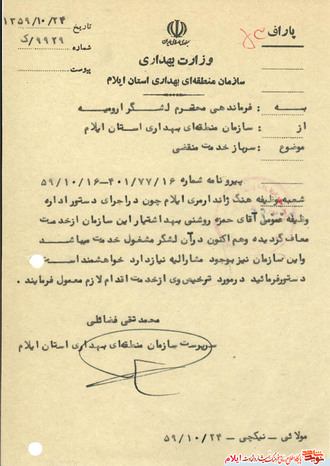 پاراف
تاریخ ۱۳۵۹/۱۰/۲۴
شماره ۹۹۲۹/ک
پیوست
وزارت بهداری
سازمان منطقه‌ای بهداری استان ایلام
به : فرماندهی محترم لشگر ارومیه
از : سازمان منطقه‌ای بهداری استان ایلام
موضوع : سرباز خدمت منقضی
پیرو نامه شماره ۴۰۱/۷۷/۱۶-۵۹/۱۰/۱۶
شعبه وظیفه هنگ ژاندارمری ایلام چون در اجرای دستور اداره
وظیفه عمومی آقای حمزه روشنی بهداشتیار این سازمان از خدمت
معاف گردیده وهم اکنون در آن لشگر مشغول خدمت میباشد
واین سازمان نیز بوجود مشارالیه نیاز دارد خواهشمند است
دستور فرمائید در مورد ترخیص وی از خدمت اقدام لازم معمول فرمایند .
محمد تقی فضائلی
سرپرست سازمان منطقه‌ای بهداری استان ایلام
مولائی - نیکچی - ۵۹/۱۰/۲۴